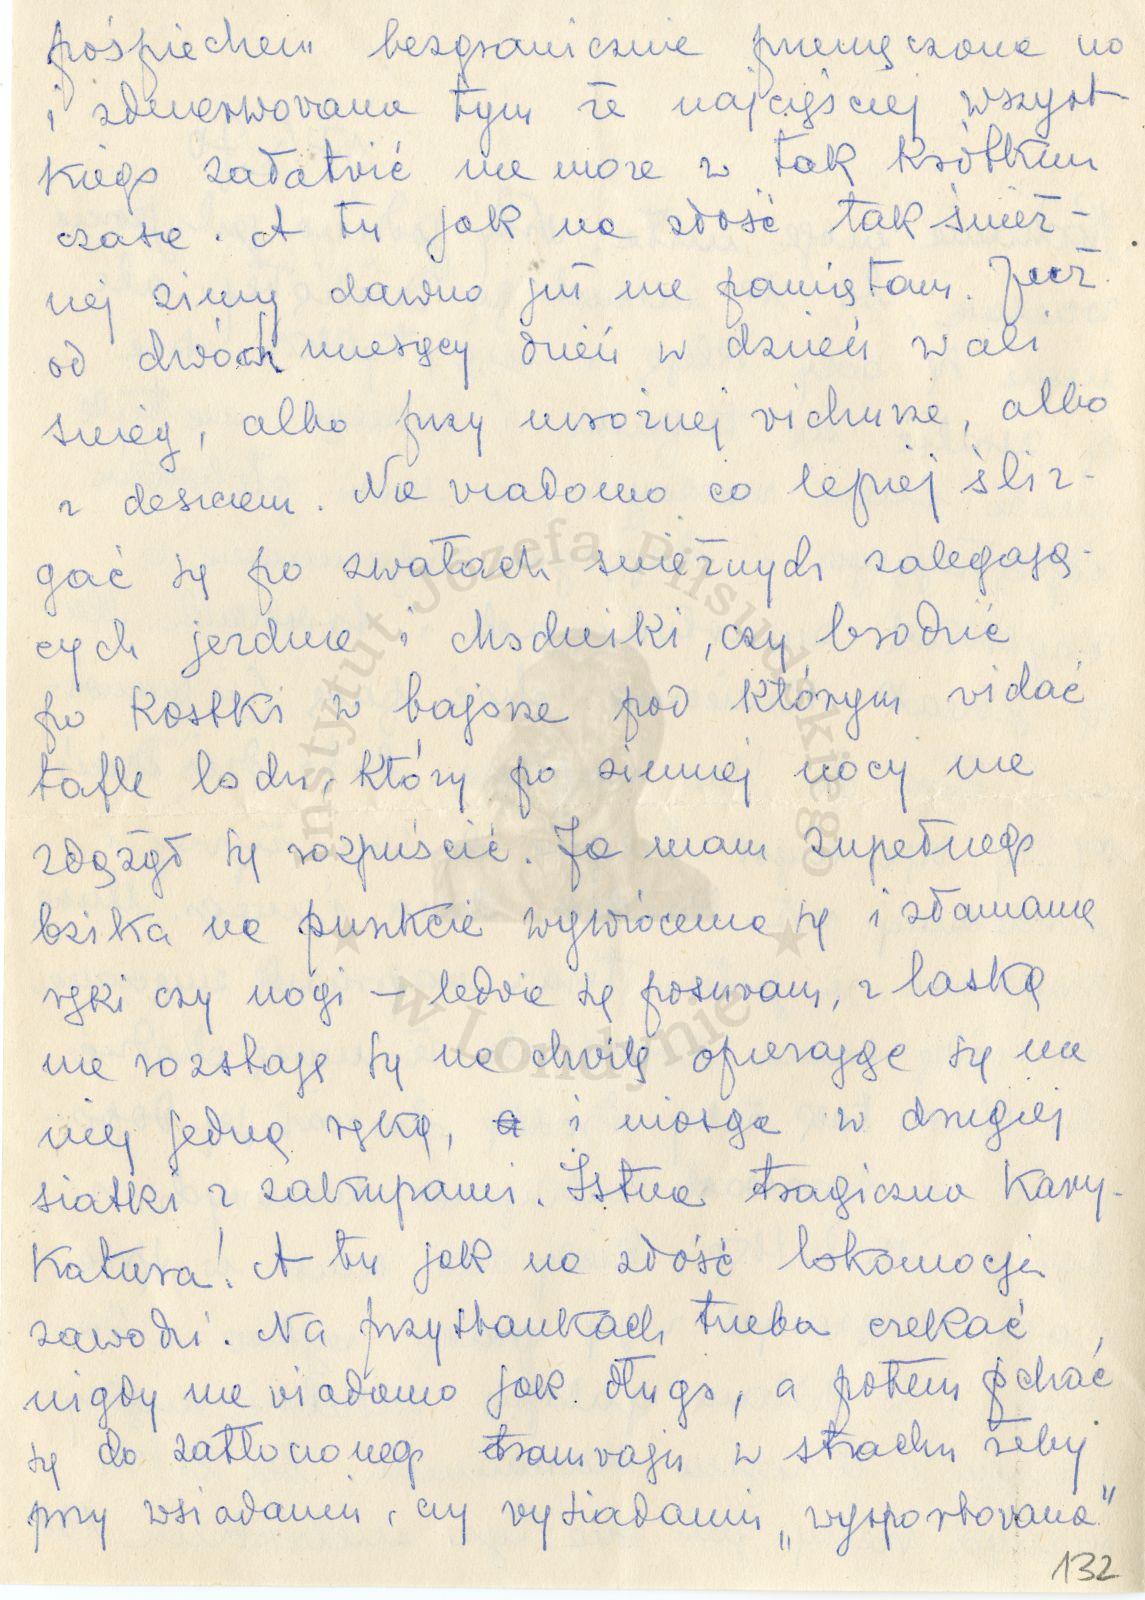 pośpiechem bezgranicznie przemęczona no
i zdenerwowana tym że najczęściej wszyst-
kiego załatwić nie może w tak krótkim
czasie. A tu jak na złość tak śnież-
nej zimy dawno już nie pamiętam. Już
od dwóch miesięcy dzień w dzień wali
śnieg, albo przy mroźnej wichurze, albo
z deszczem. Nie wiadomo co lepiej śliz-
gać się po zwałach śnieżnych zalegają-
cych jezdnie i chodniki, czy brodzić
po kostki w bajorze pod którym widać
tafle lodu, który po zimnej nocy nie
zdążył się rozpuścić. Ja mam zupełnego
bzika na punkcie wywrócenia się i złamania
ręki czy nogi – ledwie się posuwam, z laską
nie rozstaję się na chwilę opierając się na
niej jedną ręką, i niosąc w drugiej
siatki z zakupami. Istna tragiczna kary-
katura! A tu jak na złość lokomocja
zawodzi. Na przystankach trzeba czekać
nigdy nie wiadomo jak długo, a potem pchać
się do zatłoczonego tramwaju w strachu żeby
przy wsiadaniu, czy wysiadaniu „wysportowana"
132
Instytut Józefa Piłsudskiego
★ w Londynie ★